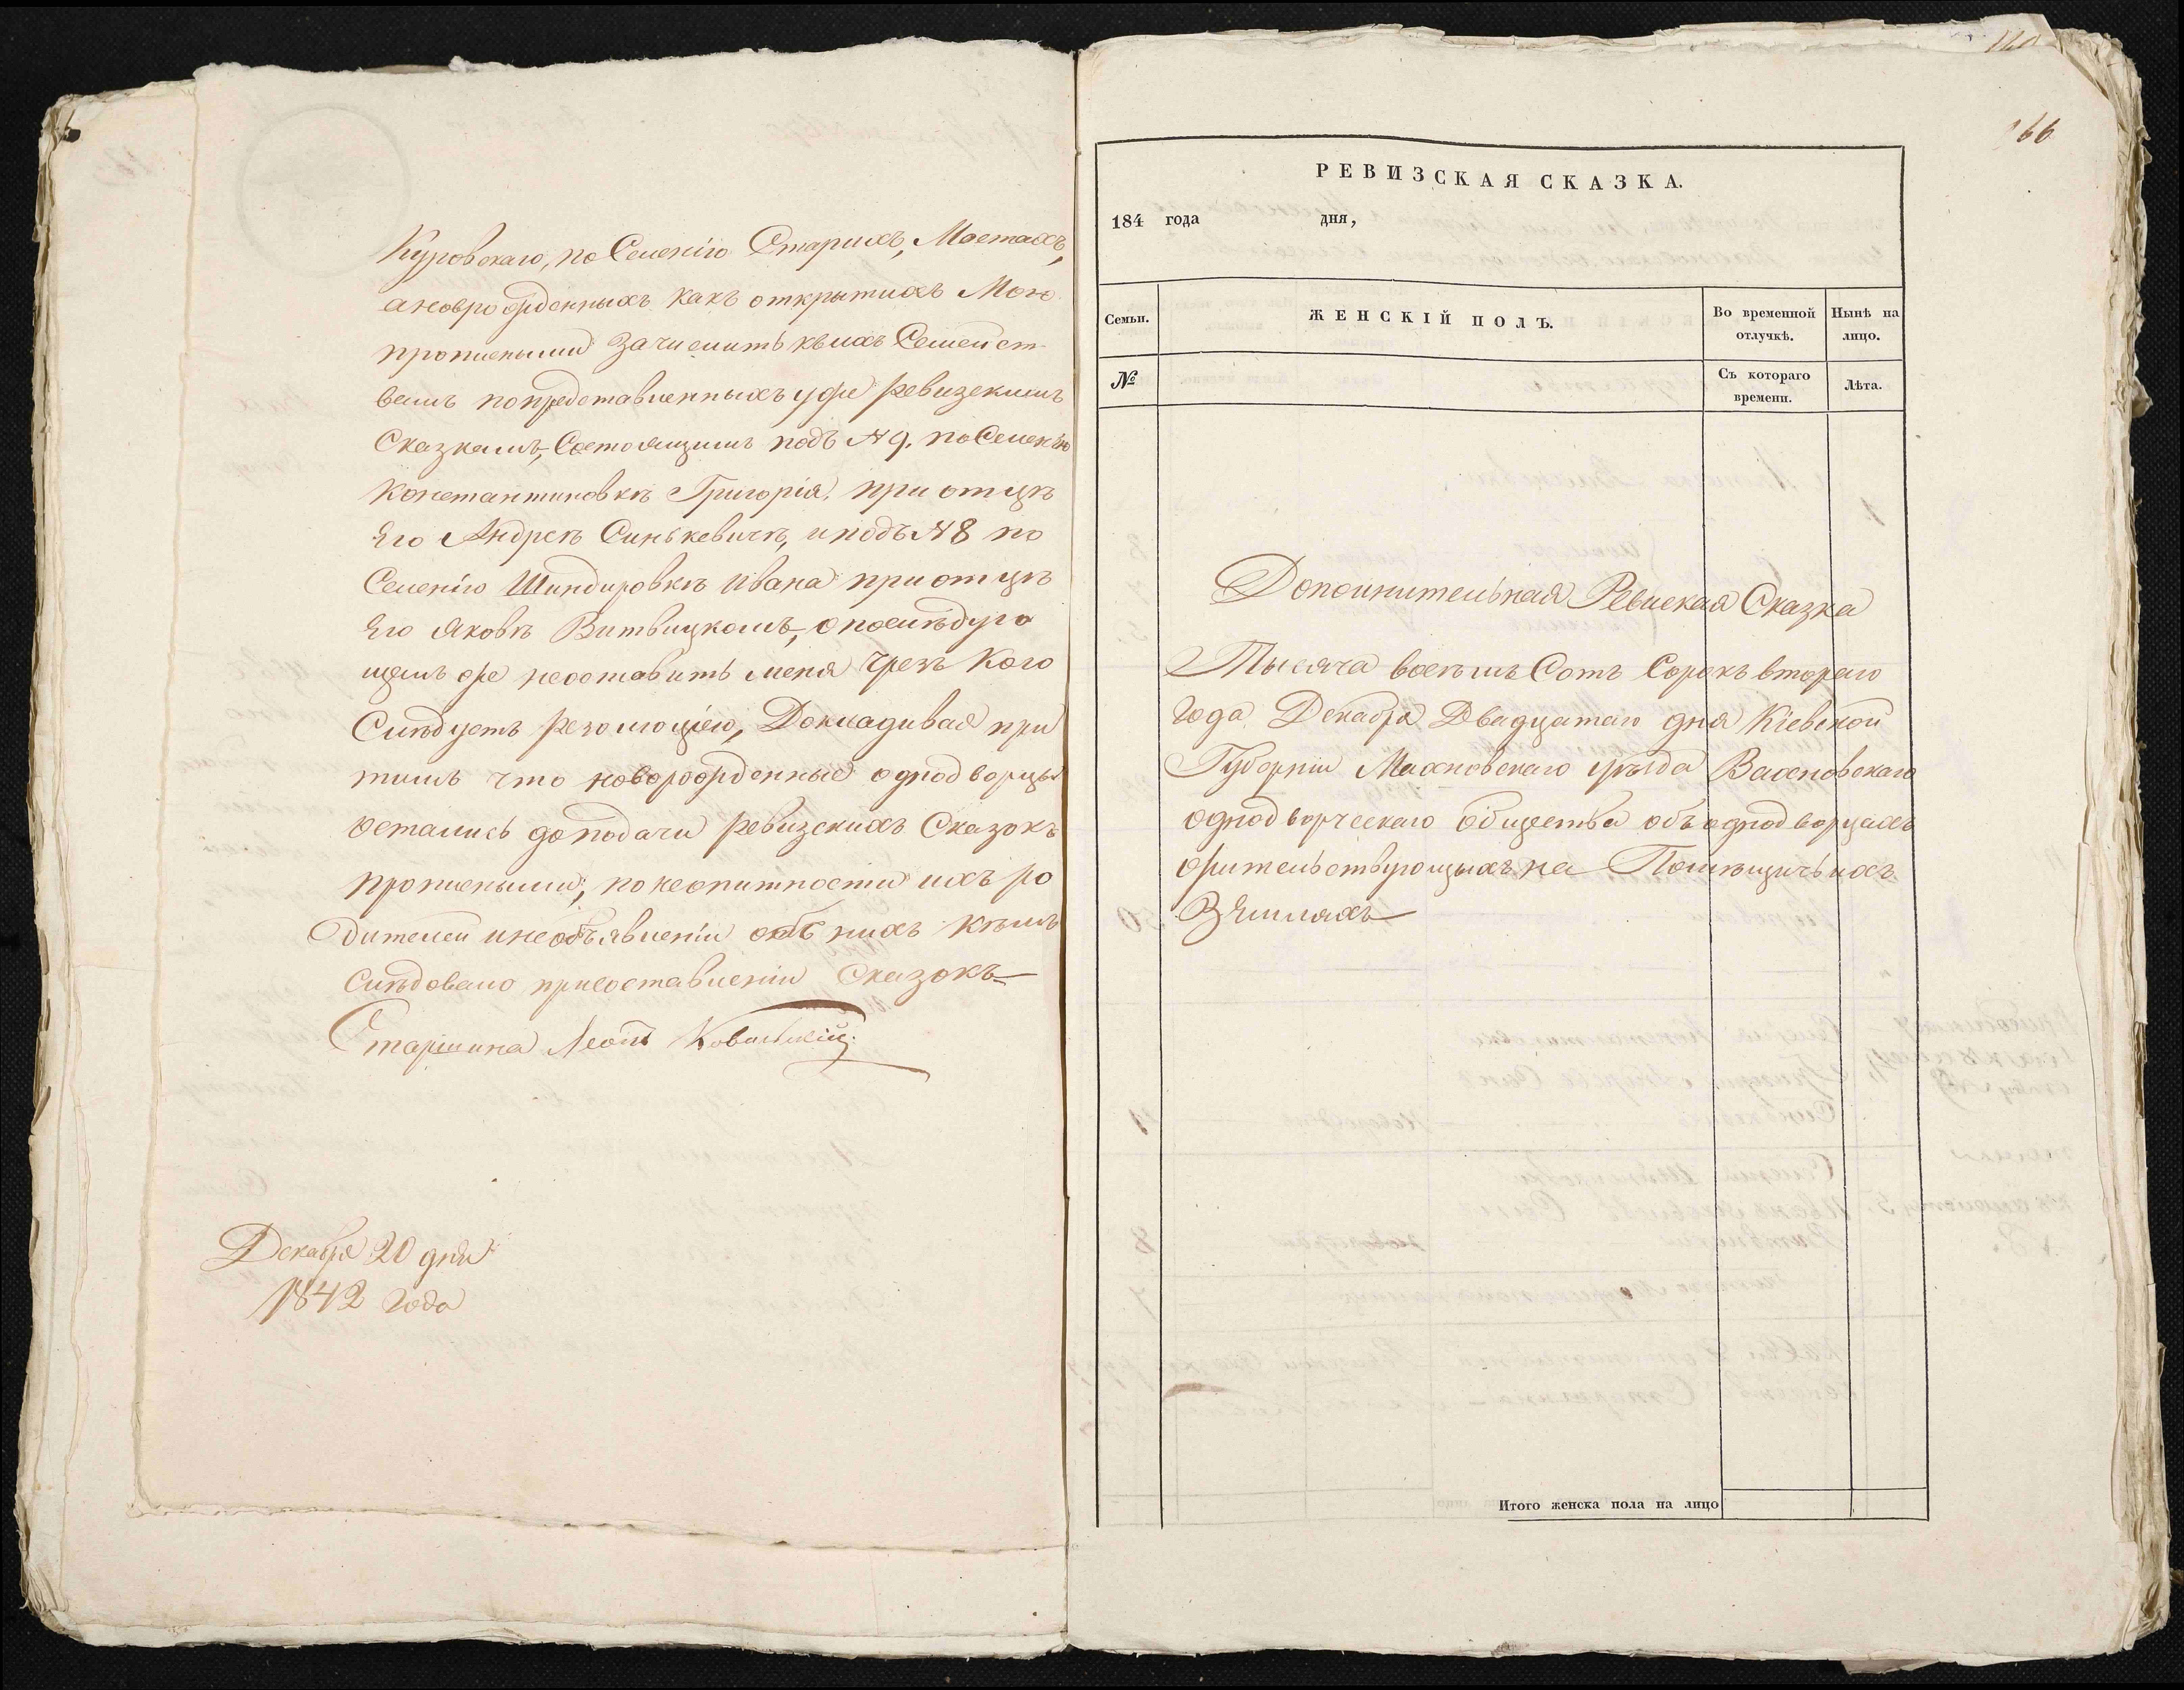 Куровскаго, по Селенію Старихъ, Мостахъ,
а новорожденныхъ какъ открытихъ Мою
прописными зачислить къ ихъ Семейст-
вамъ попредставленныхъ уже ревизскимъ
Сказкамъ, Состоящимъ подъ №9. по Селенію
Константиновкѣ Григорія, при отцѣ
Его Андреѣ Синькевичѣ, и подъ №8 по
Селенію Шиндировкѣ Ивана при отцѣ
Его Яковѣ Витвицкомъ, о послѣдую
щемъ же неоставить меня чрезъ Кого
Слѣдуетъ резолюціею, Докладивая при
тимъ что новорожденные однодворцы
остались доподачи ревизскихъ Сказокъ
прописными, по неопитности ихъ ро
дителей и необъявленіи объ нихъ Кѣмъ
слѣдовало присоставленіи Сказокъ
Старшина Леонъ Ковальскій
Декабря 20 дня
1842 Года
166
РЕВИЗСКАЯ СКАЗКА.
184 года дня,
Семьи. ЖЕНСКІЙ ПОЛЪ. Во временной отлучкѣ. Нынѣ на лицо.
№ Съ котораго времени. Лѣта.
Дополнительная Ревиская Сказка
Тысяча восемь Сотъ Сорокъ втораго
Года Декабря Двадцатаго дня Кіевской
Губерніи Махновскаго уѣзда Вахновскаго
однодворческаго общества объ однодворцахъ
жительствующыхъ на Помѣщичьихъ
Земляхъ
Итого женска пола на лицо